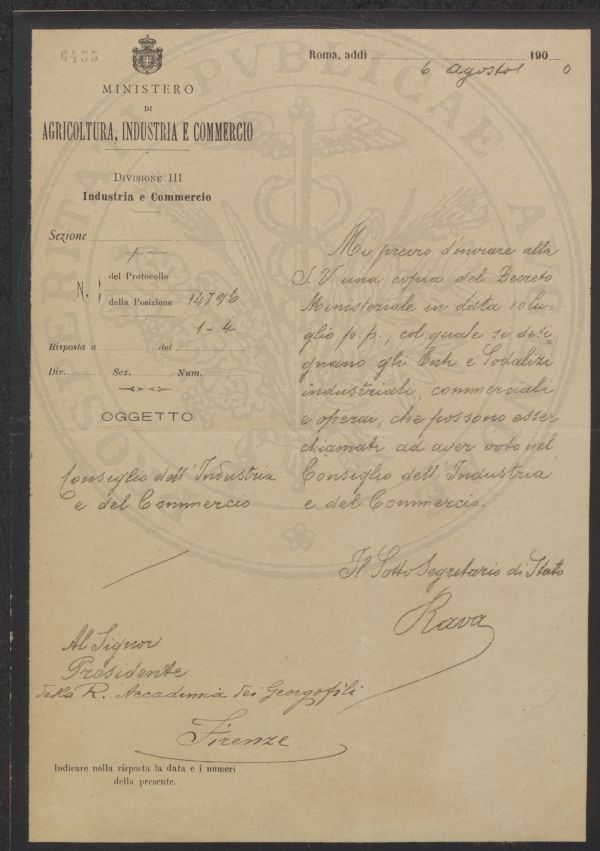 6455
Roma, addì 6 Agosto 1900
MINISTERO
DI
AGRICOLTURA, INDUSTRIA E COMMERCIO
DIVISIONE III
Industria e Commercio
Sezione
N.
del Protocollo
della Posizione 14796
1-4
Risposta a del
Div. Sez. Num.
OGGETTO
Consiglio dell'Industria
e del Commercio
Mi pregio d'inviare alla
S. V. una copia del Decreto
Ministeriale in data 10 lu=
glio p. p., col quale si desi=
gnano gli Enti e Sodalizi
industriali, commerciali
e operai, che possono esser
chiamati ad aver voto nel
Consiglio dell'Industria
e del Commercio.
Il Sotto Segretario di Stato
Rava
Al Signor
Presidente
della R. Accademia dei Georgofili
Firenze
Indicare nella risposta la data e i numeri
della presente.